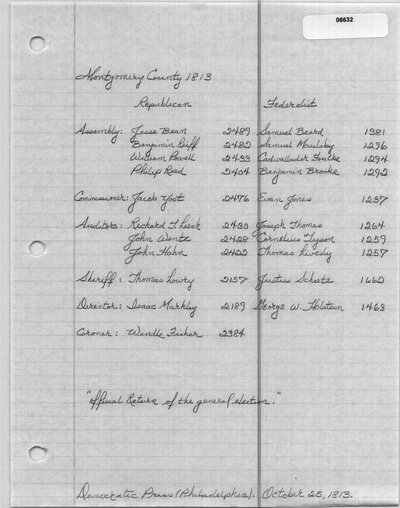 06632
Montgomery County 1813
Republican Federalist
Assembly: Jesse Bean 2489 Samuel Beard 1321
Benjamin Reiff 2482 Samuel Maulsby 1296
William Powell 2433 Cadwallader Foulke 1294
Philip Reed 2404 Benjamin Brooke 1292
Commissioner: Jacob Yost 2476 Evan Jones 1237
Auditors: Richard T. Leech 2430 Joseph Thomas 1264
John Wentz 2428 Cornelius Tyson 1259
John Hahn 2422 Thomas Livezly 1257
Sheriff: Thomas Lowry 2157 Justus Scheetz 1662
Director: Isaac Markley 2189 George W. Holstein 1463
Coroner: Wendle Fisher 2384
"Official Return of the general election."
Democratic Press (Philadelphia). October 25, 1813.